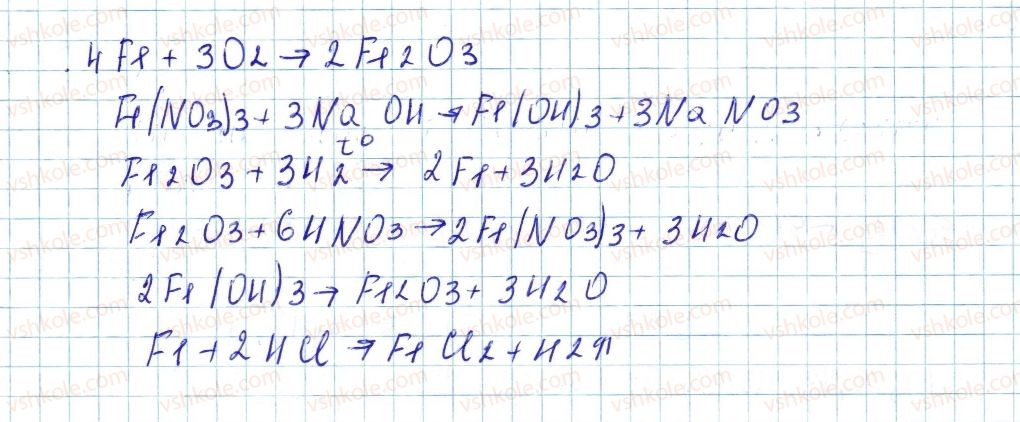 4Fe + 3O2 → 2Fe2O3
Fe(NO3)3 + 3NaOH → Fe(OH)3 + 3NaNO3
t°
Fe2O3 + 3H2 → 2Fe + 3H2O
Fe2O3 + 6HNO3 → 2Fe(NO3)3 + 3H2O
2Fe(OH)3 → Fe2O3 + 3H2O
Fe + 2HCl → FeCl2 + H2↑
vshkole.com